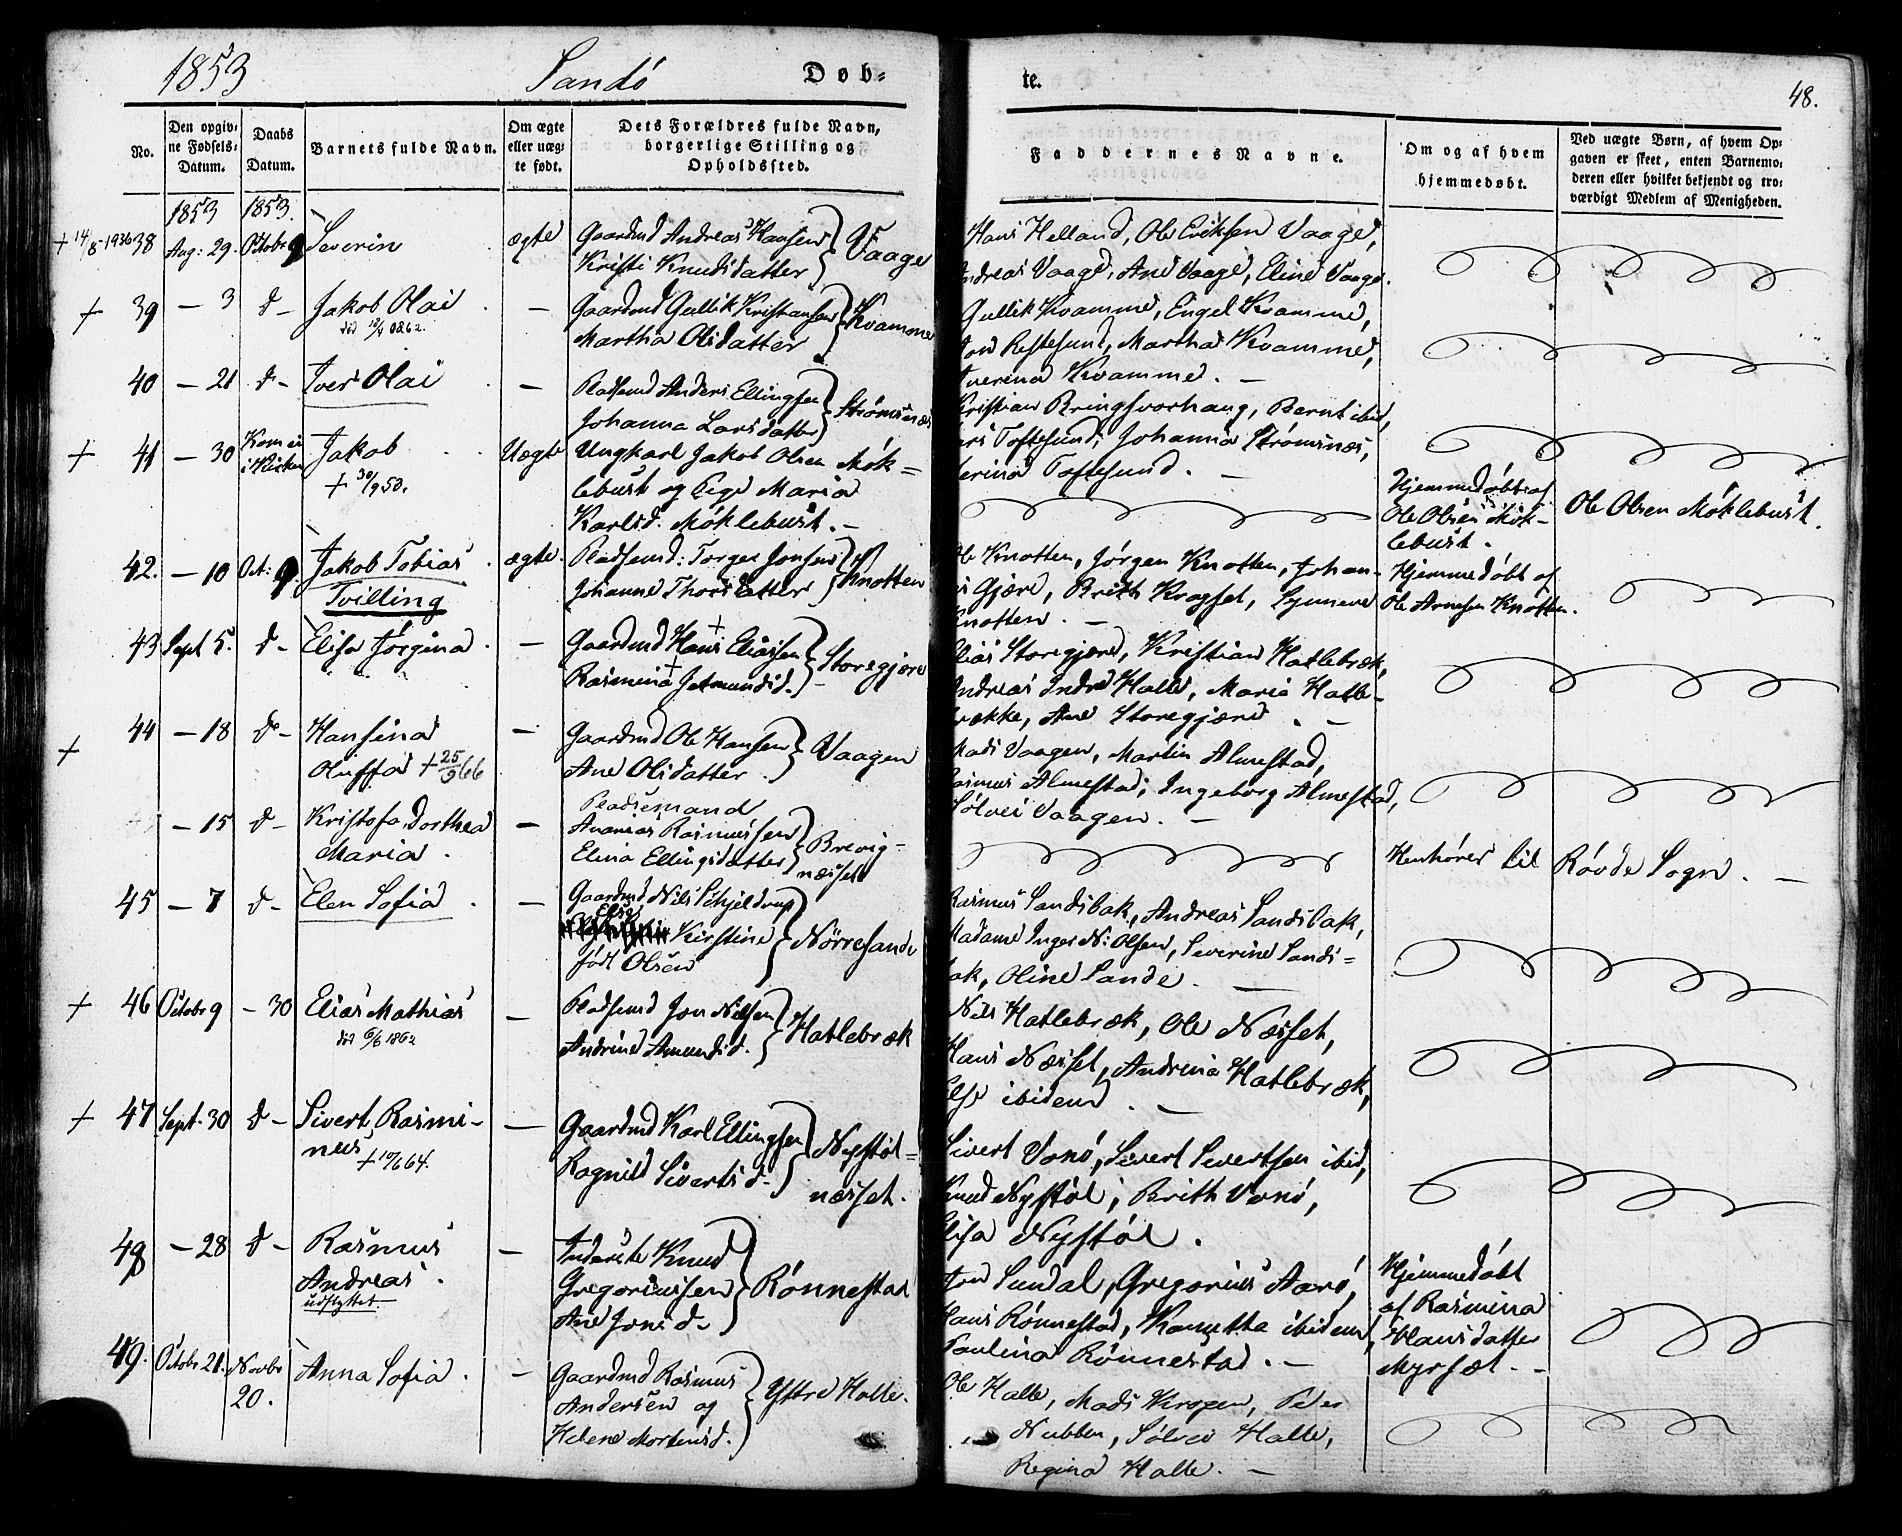 1853
Sandø
Døb-
te.
48.
No.
Den opgiv-
ne Fødsels-
Datum.
Daabs
Datum.
Barnets fulde Navn.
Om ægte
eller uæg-
te født.
Dets Forældres fulde Navn,
borgerlige Stilling og
Opholdssted.
Faddernes Navne.
Om og af hvem
hjemmedøbt.
Ved uægte Børn, af hvem Op-
gaven er skeet, enten Barnemo-
deren eller hvilket bekjendt og tro-
værdigt Medlem af Menigheden.
1853 1853.
+ 14/8-1936 38 Aug: 29. Octobr 9 Severin ægte Gaardmd Andreas Hansen
Kristi Knudsdatter } Vaage
Hans Helland, Ole Eriksen Vaage,
Andreas Vaage, Ane Vaage, Eline Vaage.
+ 39 — 3 d— Jakob Olai — Gaardmd Gullik Kristiansen
død 10/4 1862.
Martha Olsdatter } Kvamme
Gullik Kvamme, Engel Kvamme,
Martha Kvamme,
Kvamme. —
40 — 21 d— Iver Olai — Pladsmd Anders Ellingsen
Johanna Larsdatter } Strømsnæs
Kristian Bringsvorhaug, Bernt ibid,
Lars Toftesund, Johanna Strømsnæs,
Toftesund. —
+ 41 — 30 Kom ei
i Kirken Jakob Uægte Ungkarl Jakob Olsen Møk=
+ 30/9 53.
lebust og Pige Maria
Karlsd. Møklebust. —
Hjemmedøbt af
Ole Olsen Møk-
lebust.
Ole Olsen Møklebust.
42. — 10 Oct: 9. Jakob Tobias ægte. Pladsmd: Torger Jonsen
Tvilling
Johanne Thorsdatter } Knotten
Ole Knotten, Jørgen Knotten, Johan-
Gjære, Brith Kragset, Synneve
Knotten. —
Hjemmedøbt af
Ole Arnesen Knotten.
43 Sept 5. d— Elisa Jørgina. — Gaardmd Hans Eliassen
Rasmina Jetmundsd. } Storegjære
Elias Storegjære, Kristian Hatlebræk,
Andreas Indre Halle, Maria Hatle-
brække, Ane Storegjære. —
+ 44 — 18 d— Hansina — Gaardmd Ole Hansen
Oluffa + 25/9 66
Ane Olsdatter. } Vaagen
Mads Vaagen, Martin Almestad,
Rasmus Almestad, Ingeborg Almestad,
Sølvei Vaagen. —
— 15 d— Kristofa Dorthea — Pladsemand
Maria.
Ananias Rasmussen
Elina Ellingsdatter } Brevig-
næsset
Henhører til Røvde Sogn. —
45 — 7 d— Elen Sofia. — Gaardmd Nils Schjeldrup
Else
Kirstine
født Olsen } Nørresande
Rasmus Sandsbak, Andreas Sandsbak,
Madame Inger N: Olsen, Severine Sands=
bak, Oline Sande. —
+ 46 Octobr 9 — 30 Elias Mathias — Pladsmd Jon Nilsen
død 6/6 1862
Andrine Amundsd. } Hatlebræk
Nils Hatlebræk, Ole Næsset,
Hans Næsset, Andrina Hatlebræk,
Else ibidem. —
+ 47 Sept. 30 d— Sivert Rasmi- — Gaardmd Karl Ellingsen
nus + 10/6 64.
Ragnild Sivertsd— } Nystøl=
næsset.
Sivert Vonø, Sivert Sivertsen ibid,
Knud Nystøl, Brith Vonø,
Elisa Nystøl.
48 — 28 d— Rasmus — Inderste Knud
Andreas.
udflyttet.
Gregoriussen
Ane Jonsd— } Rønnestad
Jon Sundal, Gregorius Aarø,
Hans Rønnestad, ibidem,
Paulina Rønnestad. —
Hjemmedøbt
af Rasmina
Hansdatter
Myrsæt. —
49. Octobr 21. Novbr
20. Anna Sofia. — Gaardmd Rasmus
Andersen og
Helene Mortensd. } Ystre Halle.
Ole Halle, Mads Kragen, Peder
Nubben, Sølvei Halle,
Regina Halle. —